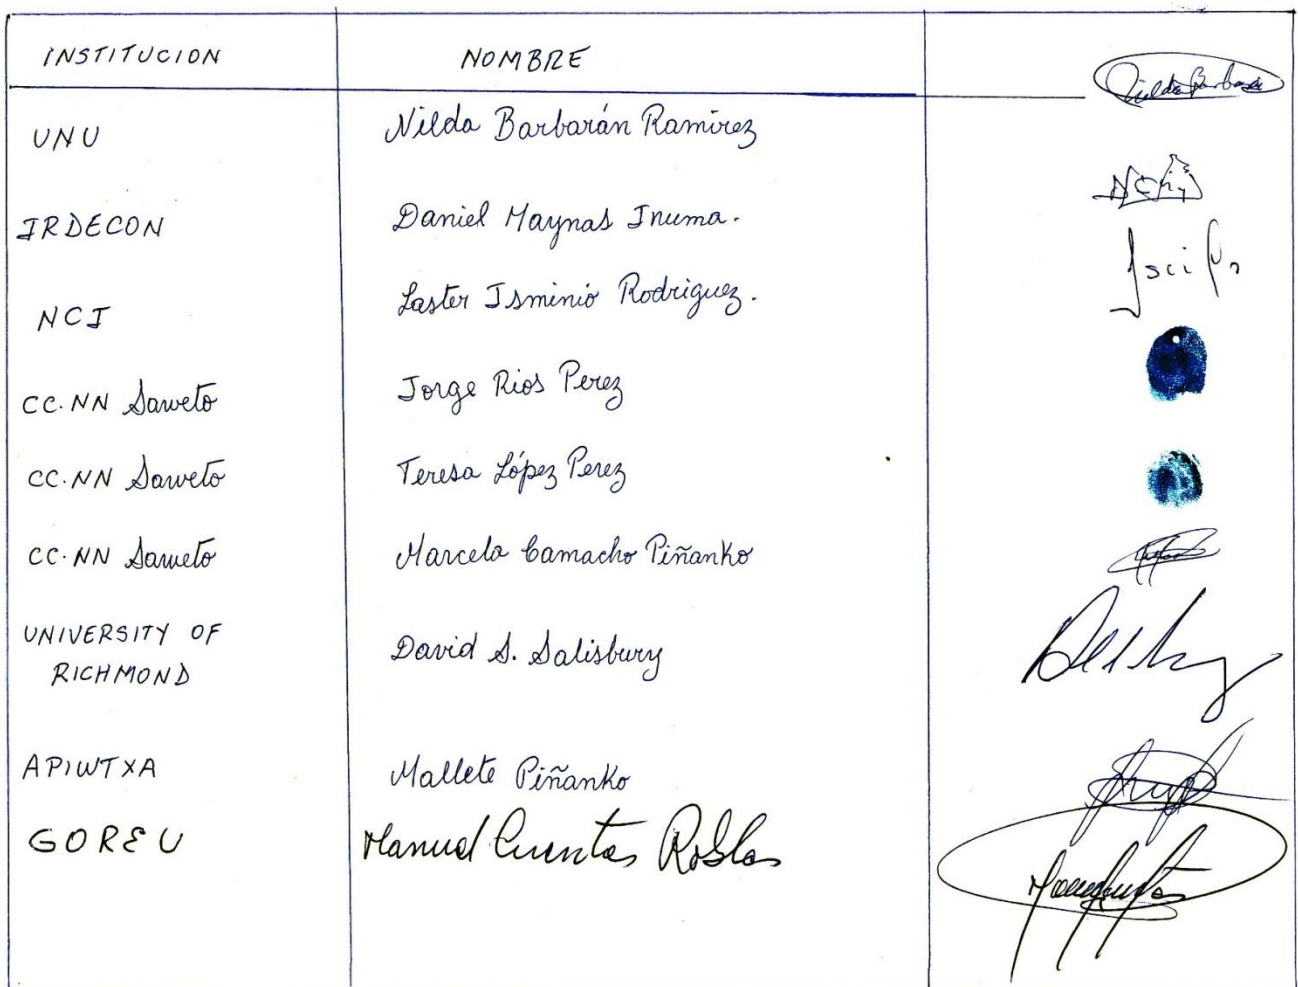 INSTITUCION NOMBRE
UNU Nilda Barbarán Ramirez
IRDECON Daniel Maynas Inuma.
NCI Laster Isminio Rodriguez.
CC.NN Saweto Jorge Rios Perez
CC.NN Saweto Teresa López Perez
CC.NN Saweto Marcelo Camacho Piñanko
UNIVERSITY OF David S. Salisbury
RICHMOND
APIWTXA Mallete Piñanko
GOREU Manuel Cuentas Robles